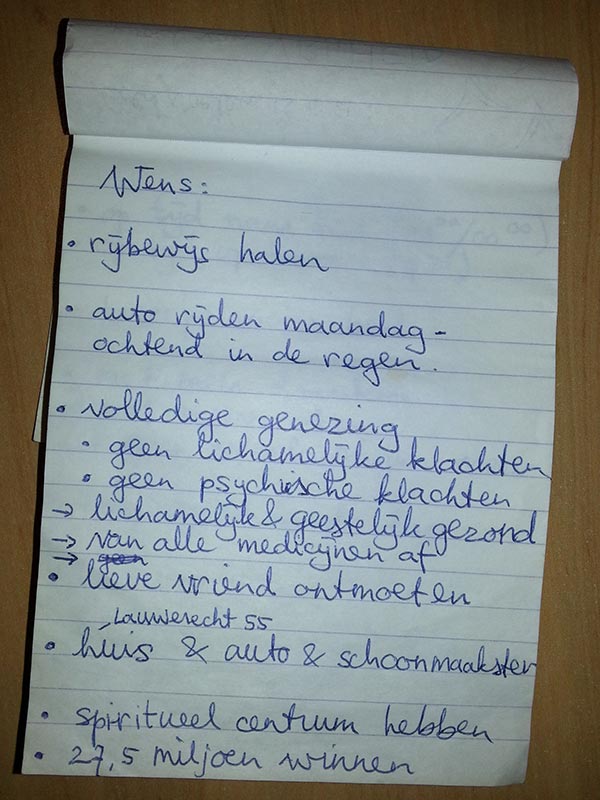 Wens:
• rijbewijs halen
• auto rijden maandag-
ochtend in de regen.
• volledige genezing
• geen lichamelijke klachten
• geen psychische klachten
→ lichamelijk & geestelijk gezond
→ van alle medicijnen af
→ geen
• lieve vriend ontmoeten
Lauwerecht 55
• huis & auto & schoonmaakster
• spiritueel centrum hebben
• 27,5 miljoen winnen